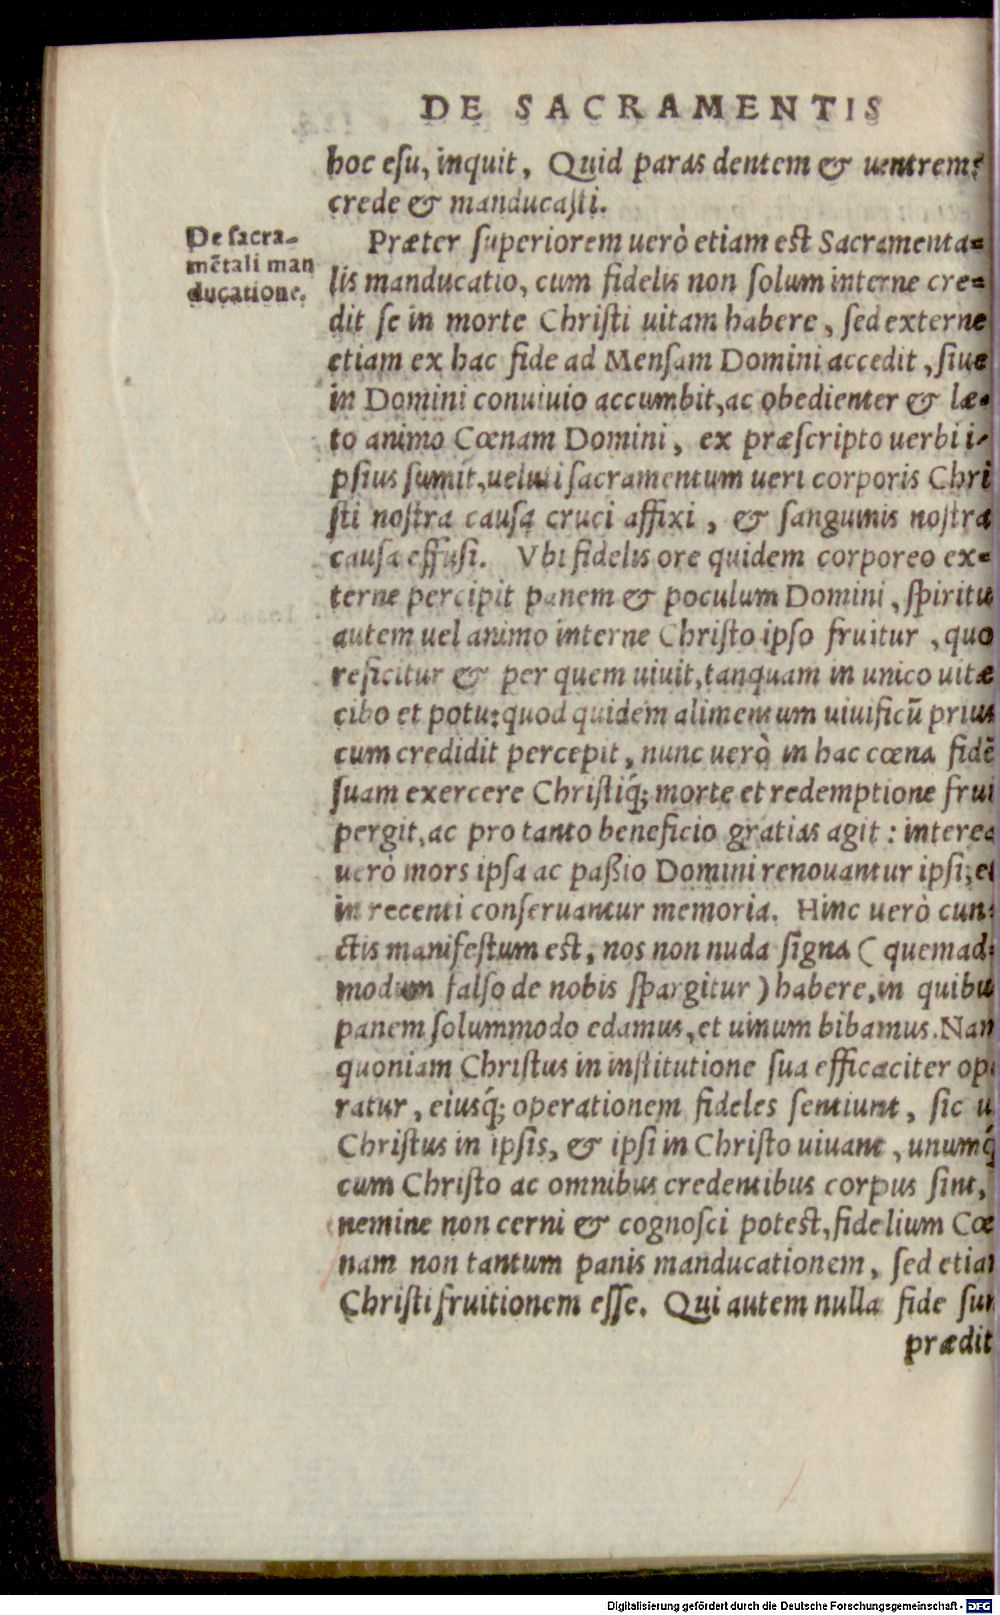 DE SACRAMENTIS
hoc esu, inquit, Quid paras dentem & uentrem?
crede & manducasti.
De sacra-
mētali man
ducatione.
Præter superiorem uerò etiam est Sacramenta-
lis manducatio, cum fidelis non solum interne cre-
dit se in morte Christi uitam habere, sed externe
etiam ex hac fide ad Mensam Domini accedit, siue
in Domini conuiuio accumbit, ac obedienter & læ-
to animo Cœnam Domini, ex præscripto uerbi i-
psius sumit, ueluti sacramentum ueri corporis Chri
sti nostra causa cruci affixi, & sanguinis nostra
causa effusi. Vbi fidelis ore quidem corporeo ex-
terne percipit panem & poculum Domini, spiritu
autem uel animo interne Christo ipso fruitur, quo
reficitur & per quem uiuit, tanquam in unico uitæ
cibo et potu: quod quidem alimentum uiuificū prius
cum credidit percepit, nunc uerò in hac cœna fidē
suam exercere Christiq́; morte et redemptione frui
pergit, ac pro tanto beneficio gratias agit: interea
uerò mors ipsa ac paßio Domini renouantur ipsi, et
in recenti conseruantur memoria. Hinc uerò cun-
ctis manifestum est, nos non nuda signa (quemad-
modum falso de nobis spargitur) habere, in quibu
panem solummodo edamus, et uinum bibamus. Nam
quoniam Christus in institutione sua efficaciter ope
ratur, eiusq́; operationem fideles sentiunt, sic u
Christus in ipsis, & ipsi in Christo uiuant, unumq́
cum Christo ac omnibus credentibus corpus sint,
nemine non cerni & cognosci potest, fidelium Cœ
nam non tantum panis manducationem, sed etiam
Christi fruitionem esse. Qui autem nulla fide sun
prædit
Digitalisierung gefördert durch die Deutsche Forschungsgemeinschaft - DFG